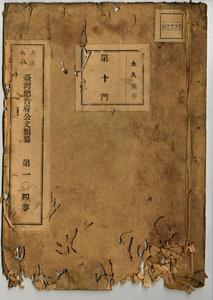 02735
永久保存
第十門
大正六年
臺灣總督府公文類纂
第一〇四卷